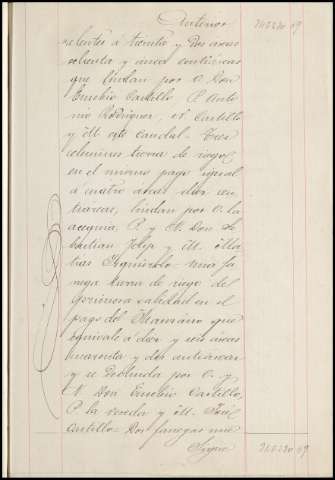 Anterior 74220 69
valentes á treinta y dos areas
ochenta y cinco centiareas
que lindan por O. Don
Eusebio Castillo P. Anto
nio Rodriguez, N. Castillo
y M. este caudal. Tres
celemines tierra de riego
en el mismo pago igual
á cuatro areas diez cen
tiareas, lindan por O. la
acequia, P. y N. Don Se
bastian Felip y M. Ma
tias Izquierdo. Una fa
nega tierra de riego de
primera calidad en el
pago del que
equivale á diez y seis areas
cuarenta y dos centiareas
y se deslinda por O. y
N. Don Eusebio Castillo,
P. la vereda y M. José
Castillo. Dos fanegas mas
Sigue 74220 69